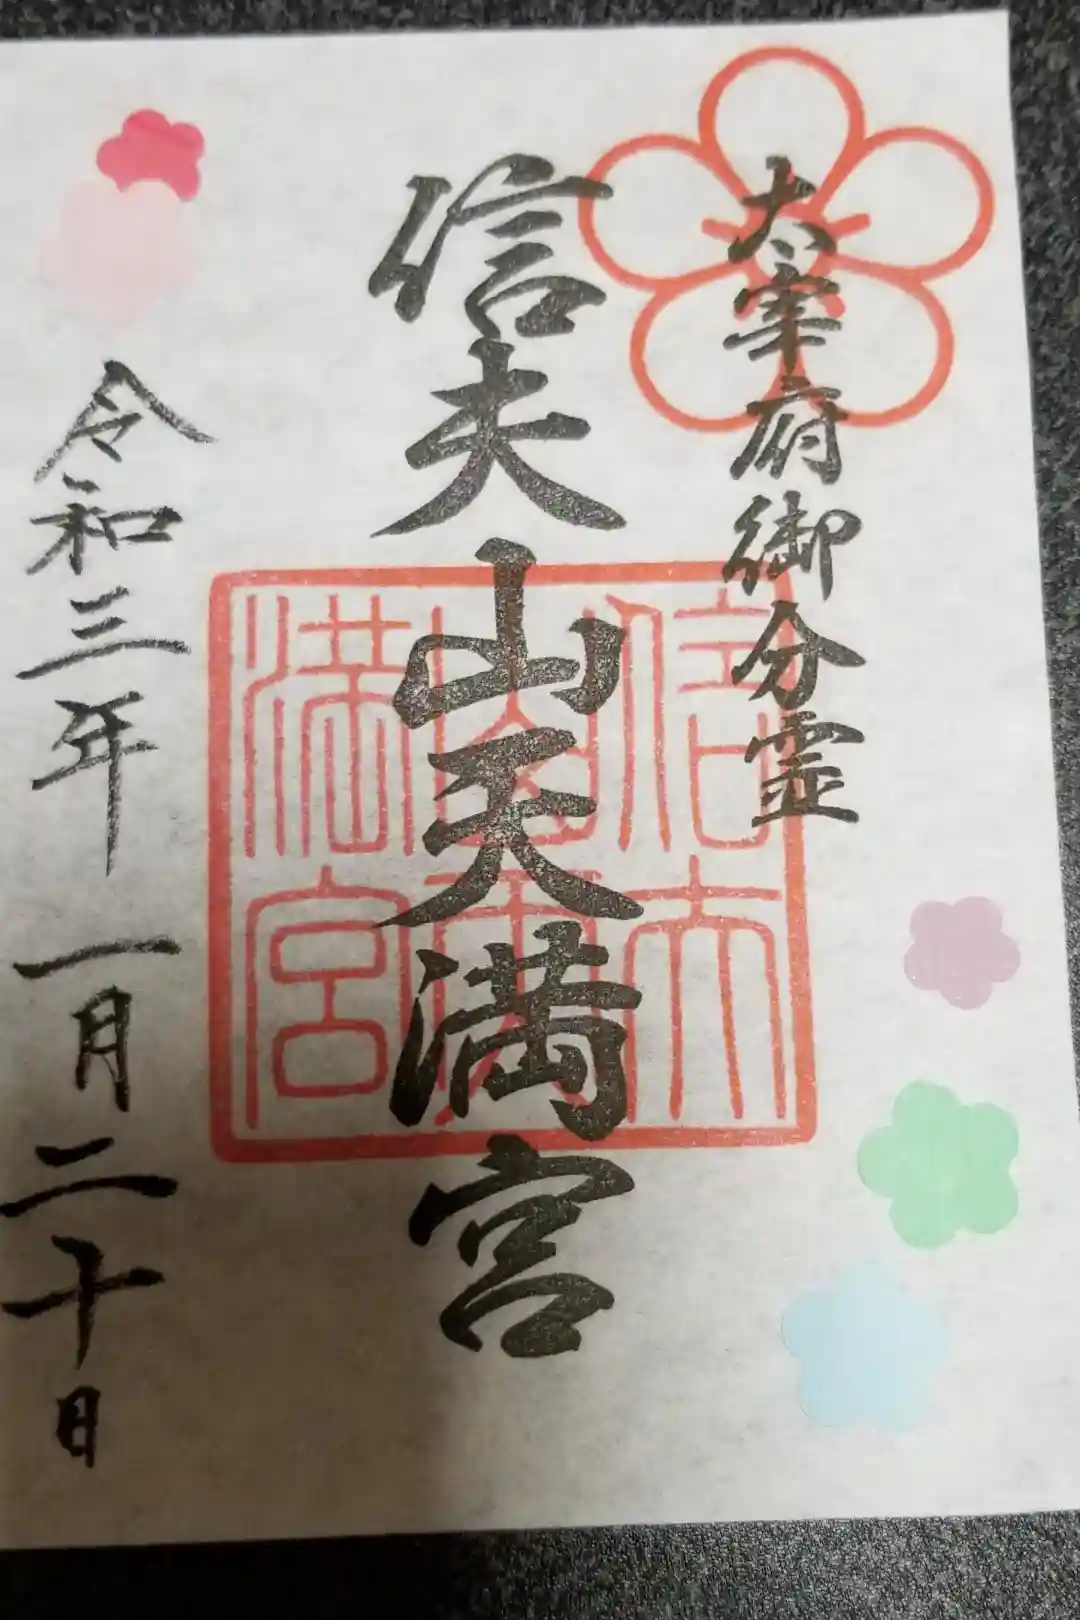 太宰府御分霊
信夫山天満宮
信夫山天満宮
令和三年 一月二十日